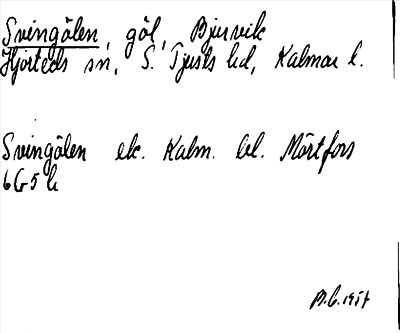 Svingölen, göl, Bjurvik
Hjorteds sn, S. Tjusts hd, Kalmar l.
Svingölen ek. Kalm. bl. Mörtfors
6G5h